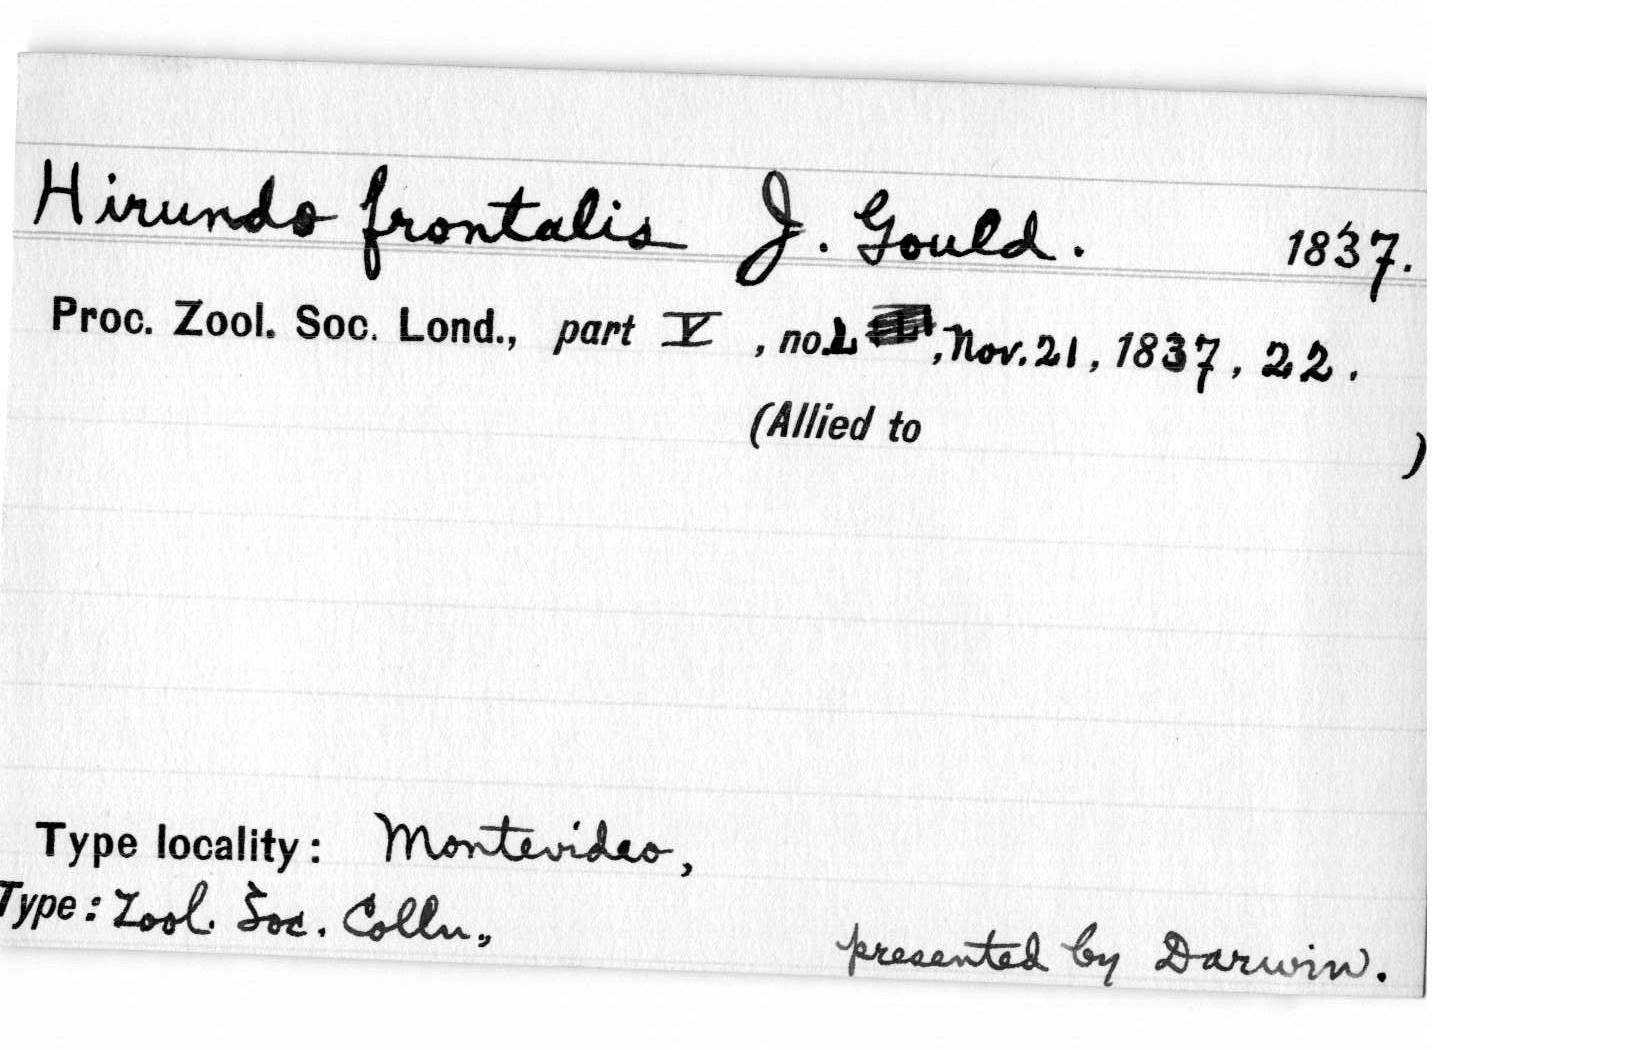 Hirundo frontalis J. Gould. 1837.
Proc. Zool. Soc. Lond., part V , no. , Nov. 21 , 1837 , 22 .
(Allied to )
Type locality : Montevideo ,
Type : Zool. Soc. Colln.,
presented by Darwin .